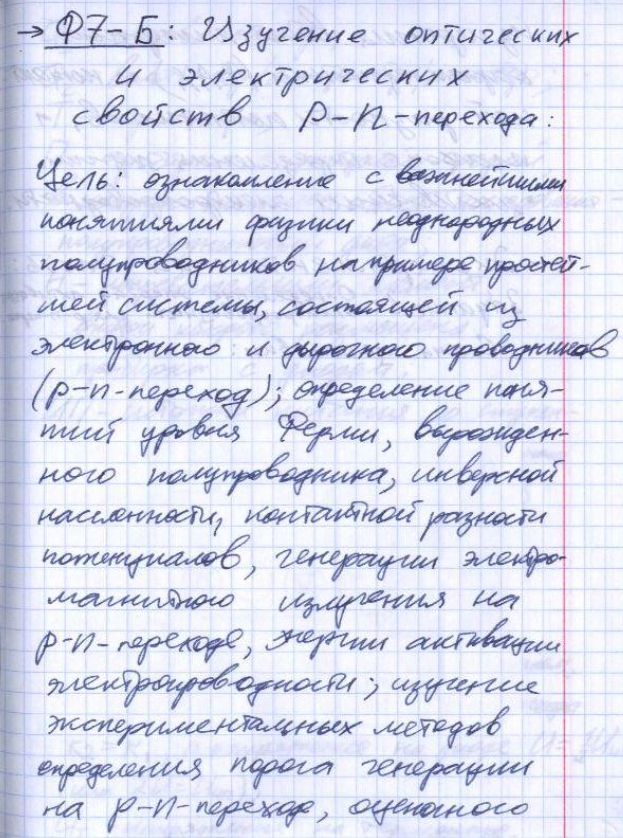 → Ф7-Б: Изучение оптических
и электрических
свойств p-n-перехода:
Цель: ознакомление с важнейшими
понятиями физики неоднородных
полупроводников на примере простей-
шей системы, состоящей из
электронного и дырочного проводников
(p-n-переход); определение поня-
тий уровня Ферми, вырожден-
ного полупроводника, инверсной
населенности, контактной разности
потенциалов, генерации электро-
магнитного излучения на
p-n-переходе, энергии активации
электропроводности; изучение
экспериментальных методов
определения порога генерации
на p-n-переходе,